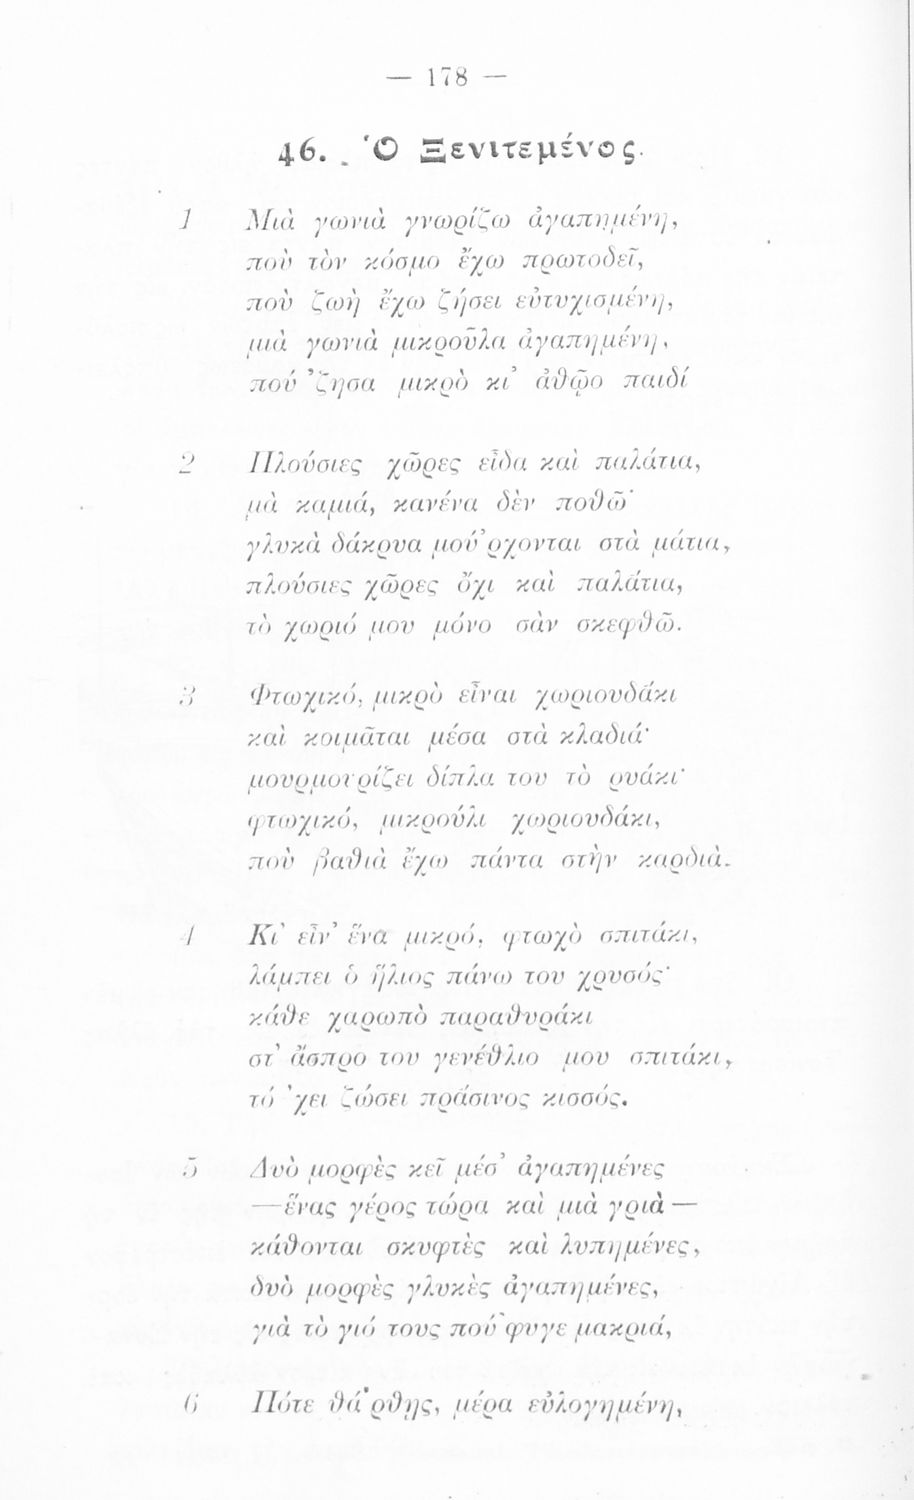 — 178 —
46. Ὁ Ξενιτεμένος.
1 Μιὰ γωνιὰ γνωρίζω ἀγαπημένη,
ποὺ τὸν κόσμο ἔχω πρωτοδεῖ,
ποὺ ζωὴ ἔχω ζήσει εὐτυχισμένη,
μιὰ γωνιὰ μικροῦλα ἀγαπημένη,
πού ’ζησα μικρὸ κι’ ἀθῷο παιδί
2 Πλούσιες χῶρες εἶδα καὶ παλάτια,
μὰ καμιά, κανένα δὲν ποθῶ·
γλυκὰ δάκρυα μοὔ’ρχονται στὰ μάτια,
πλούσιες χῶρες ὄχι καὶ παλάτια,
τὸ χωριό μου μόνο σὰν σκεφθῶ.
3 Φτωχικό, μικρὸ εἶναι χωριουδάκι
καὶ κοιμᾶται μέσα στὰ κλαδιά·
μουρμουρίζει δίπλα του τὸ ρυάκι·
φτωχικό, μικρούλι χωριουδάκι,
ποὺ βαθιὰ ἔχω πάντα στὴν καρδιά.
4 Κι’ εἶν’ ἕνα μικρό, φτωχὸ σπιτάκι,
λάμπει ὁ ἥλιος πάνω του χρυσός·
κάθε χαρωπὸ παραθυράκι
στ’ ἄσπρο του γενέθλιο μου σπιτάκι,
τό ’χει ζώσει πράσινος κισσός.
5 Δυὸ μορφὲς κεῖ μέσ’ ἀγαπημένες
—ἕνας γέρος τώρα καὶ μιὰ γριὰ—
κάθονται σκυφτὲς καὶ λυπημένες,
δυὸ μορφὲς γλυκὲς ἀγαπημένες,
γιὰ τὸ γιό τους πού ’φυγε μακριά,
6 Πότε θά ’ρθῃς, μέρα εὐλογημένη,